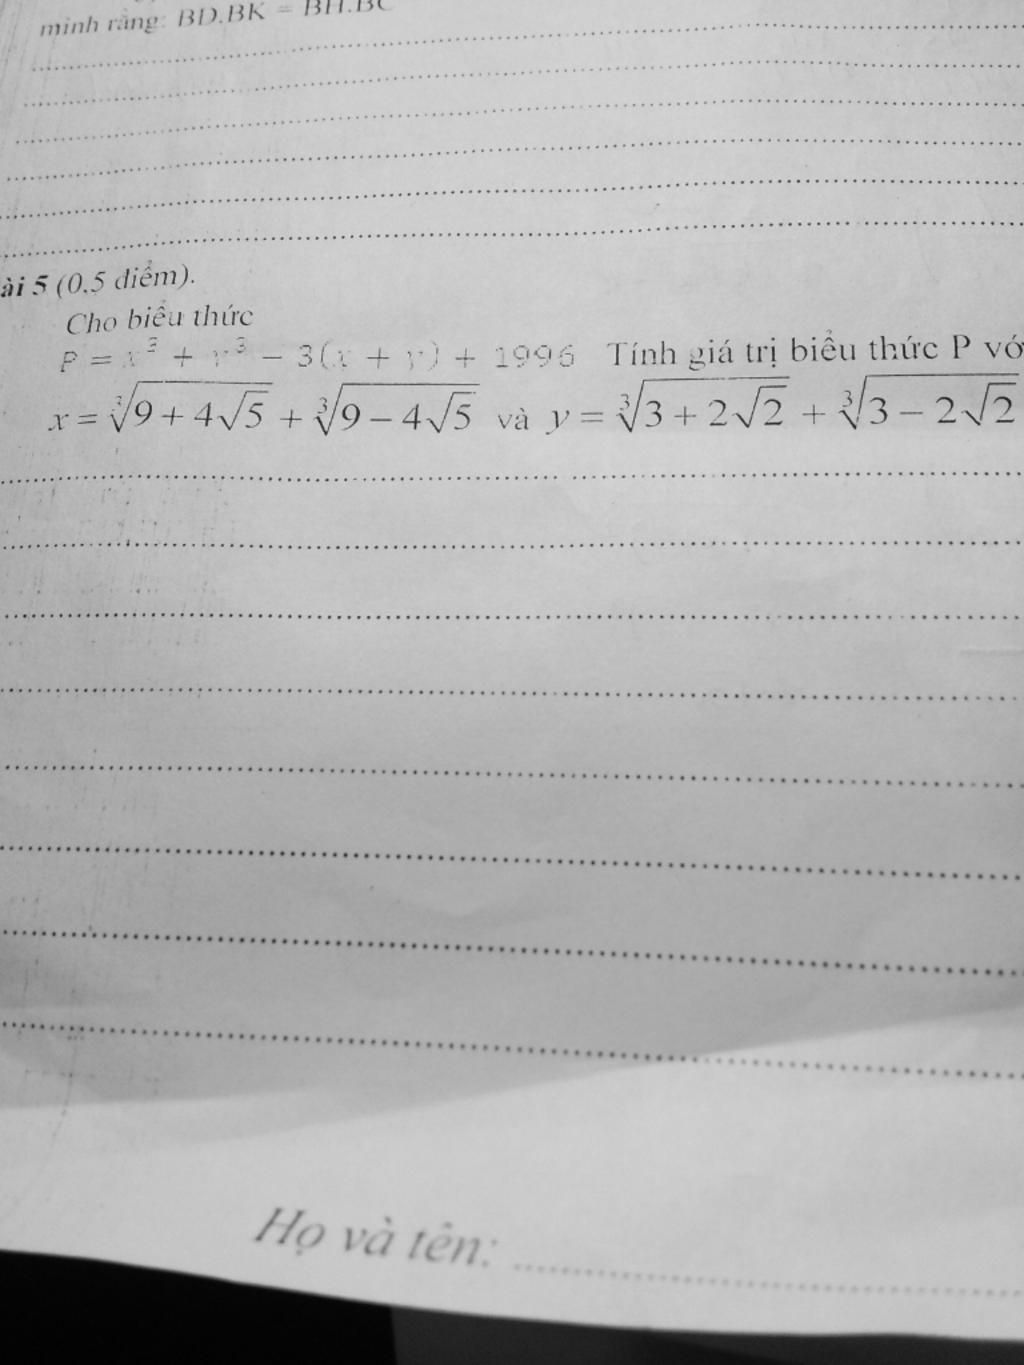 minh rằng: BD.BK = BH.BC
ài 5 (0,5 điểm).
Cho biểu thức
P = x³ + y³ − 3(x + y) + 1996 Tính giá trị biểu thức P vớ
x = ∛(9 + 4√5) + ∛(9 − 4√5) và y = ∛(3 + 2√2) + ∛(3 − 2√2)
Họ và tên: